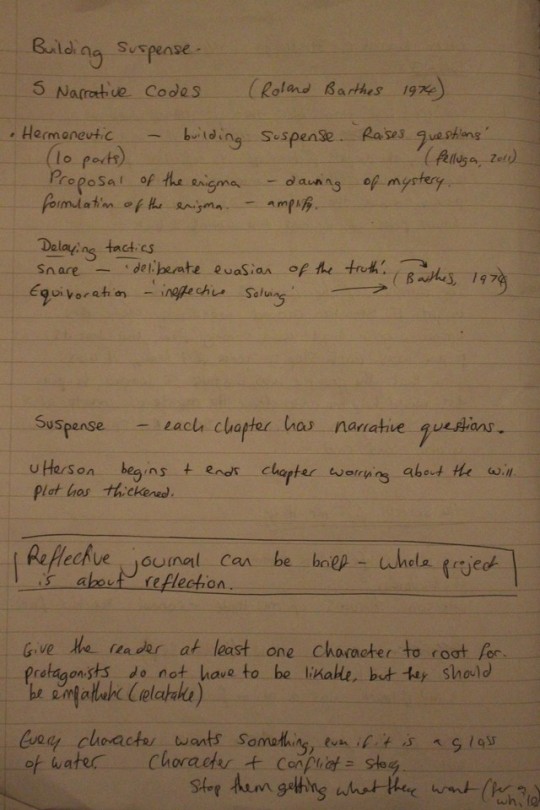 Building Suspense.
5 Narrative Codes (Roland Barthes 1974)
• Hermeneutic – building suspense. 'Raises questions'
(10 parts) (Felluga, 2011)
Proposal of the enigma – dawning of mystery.
formulation of the enigma. – amplify.
Delaying tactics
Snare – 'deliberate evasion of the truth'.
Equivocation – 'ineffective solving' (Barthes, 1974)
Suspense – each chapter has narrative questions.
Utterson begins + ends chapter worrying about the will.
plot has thickened.
Reflective journal can be brief – whole project
is about reflection.
Give the reader at least one character to root for.
protagonists do not have to be likable, but they should
be empathetic (relatable)
Every character wants something, even if it is a glass
of water. Character + conflict = story.
Stop them getting what they want (for a
while)